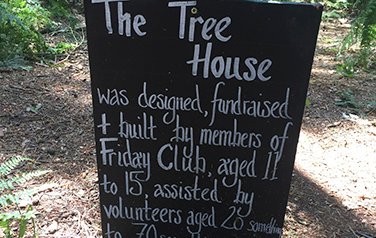 The Tree
House
was designed, fundraised
+ built by members of
Friday Club, aged 11
to 15, assisted by
volunteers aged 20 something
to 70